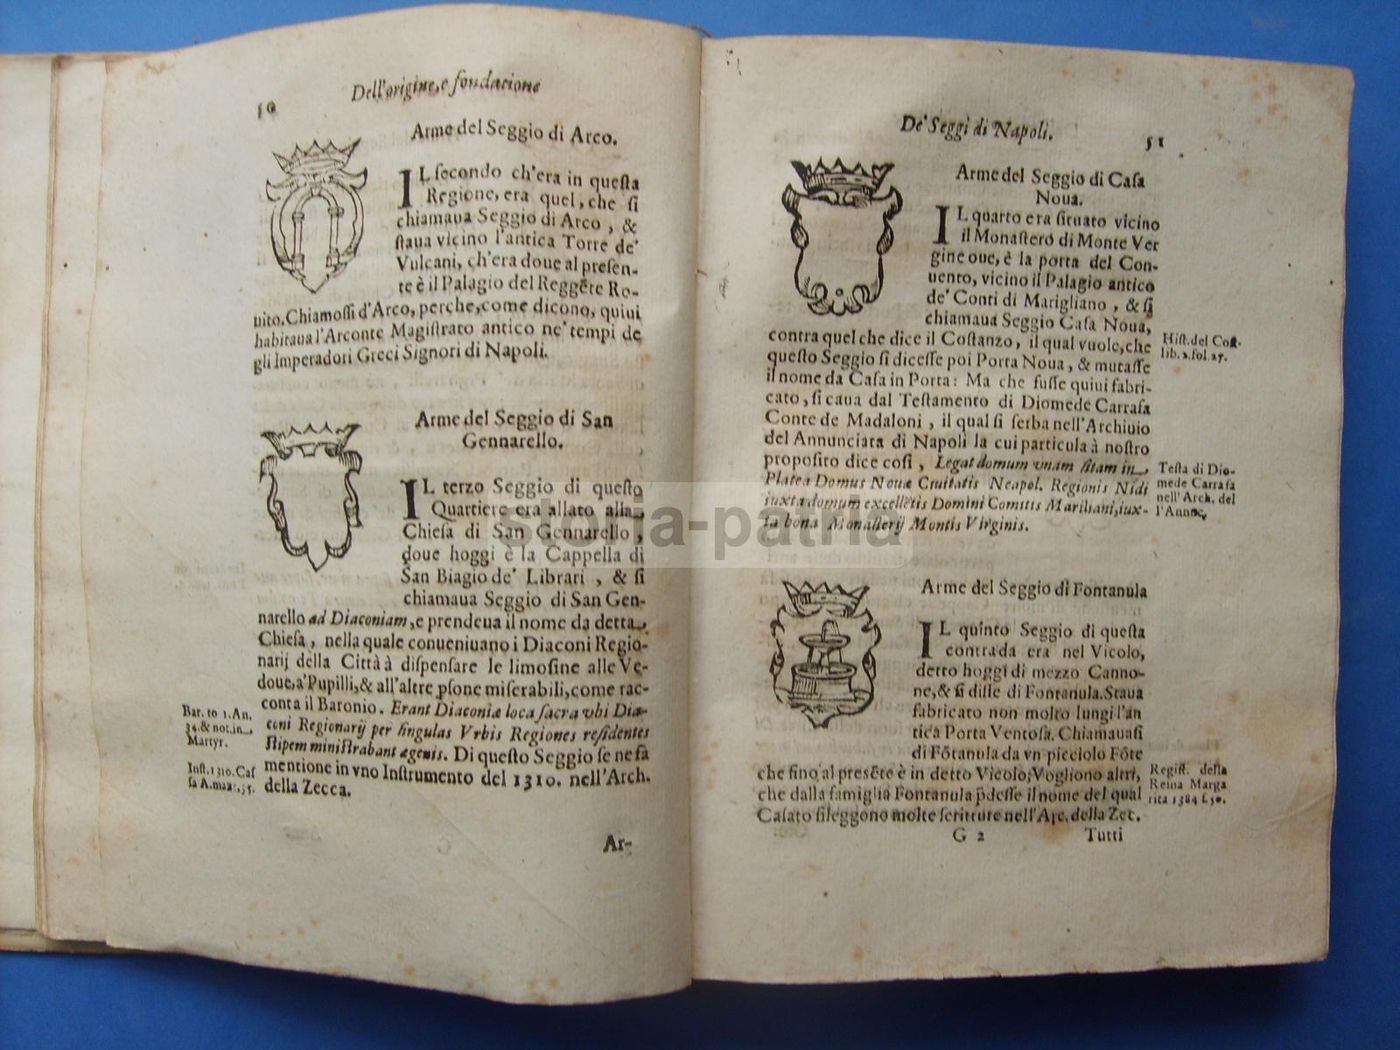 50
Dell'origine, e fondatione
Arme del Seggio di Arco.
IL secondo ch'era in questa
Regione, era quel, che si
chiamaua Seggio di Arco, &
staua vicino l'antica Torre de'
Vulcani, ch'era doue al presen-
te è il Palagio del Reggēte Ro-
uito. Chiamossi d'Arco, perche, come dicono, quiui
habitaua l'Arconte Magistrato antico ne' tempi de
gli Imperadori Greci Signori di Napoli.
Arme del Seggio di San
Gennarello.
IL terzo Seggio di questo
Quartiere era allato alla
Chiesa di San Gennarello,
doue hoggi è la Cappella di
San Biagio de' Librari, & si
chiamaua Seggio di San Gen-
narello ad Diaconiam, e prendeua il nome da detta
Chiesa, nella quale conueniuano i Diaconi Regio-
narij della Città à dispensare le limosine alle Ve-
doue, a' Pupilli, & all'altre psone miserabili, come rac-
conta il Baronio. Erant Diaconiæ loca sacra vbi Dia-
coni Regionarij per singulas Vrbis Regiones residentes
stipem ministrabant egenis. Di questo Seggio se ne fa
mentione in vno Instrumento del 1310. nell'Arch.
della Zecca.
Bar. to 1. An.
34. & not. in
Martyr.
Inst. 1310. Cas
sa A. maz: 35.
Ar-
De' Seggi di Napoli.
51
Arme del Seggio di Casa
Noua.
IL quarto era situato vicino
il Monastero di Monte Ver
gine oue, è la porta del Con-
uento, vicino il Palagio antico
de' Conti di Marigliano, & si
chiamaua Seggio Casa Noua,
contra quel che dice il Costanzo, il qual vuole, che
questo Seggio si dicesse poi Porta Noua, & mutasse
il nome da Casa in Porta: Ma che fusse quiui fabri-
cato, si caua dal Testamento di Diomede Carrafa
Conte de Madaloni, il qual si serba nell'Archiuio
del Annunciata di Napoli la cui particula à nostro
proposito dice così, Legat domum vnam sitam in
Platea Domus Nouæ Ciuitatis Neapol. Regionis Nidi
iuxta domum excellētis Domini Comitis Mariliani, iux-
ta bona Monasterij Montis Virginis.
Hist. del Cost.
lib. 2. fol. 27.
Testa di Dio-
mede Carrafa
nell'Arch. del
l'Annoc,
Arme del Seggio di Fontanula
IL quinto Seggio di questa
contrada era nel Vicolo,
detto hoggi di mezzo Canno-
ne, & si disse di Fontanula. Staua
fabricato non molto lungi l'an
tica Porta Ventosa. Chiamauasi
di Fōtanula da vn picciolo Fōte
che fino al presēte è in detto Vicolo; Vogliono altri,
che dalla famiglia Fontanula pdesse il nome del qual
Casato si leggono molte scritture nell'Arc. della Zec.
Regist. della
Reina Marga
rita 1384 f. 50.
G 2
Tutti
storia-patria